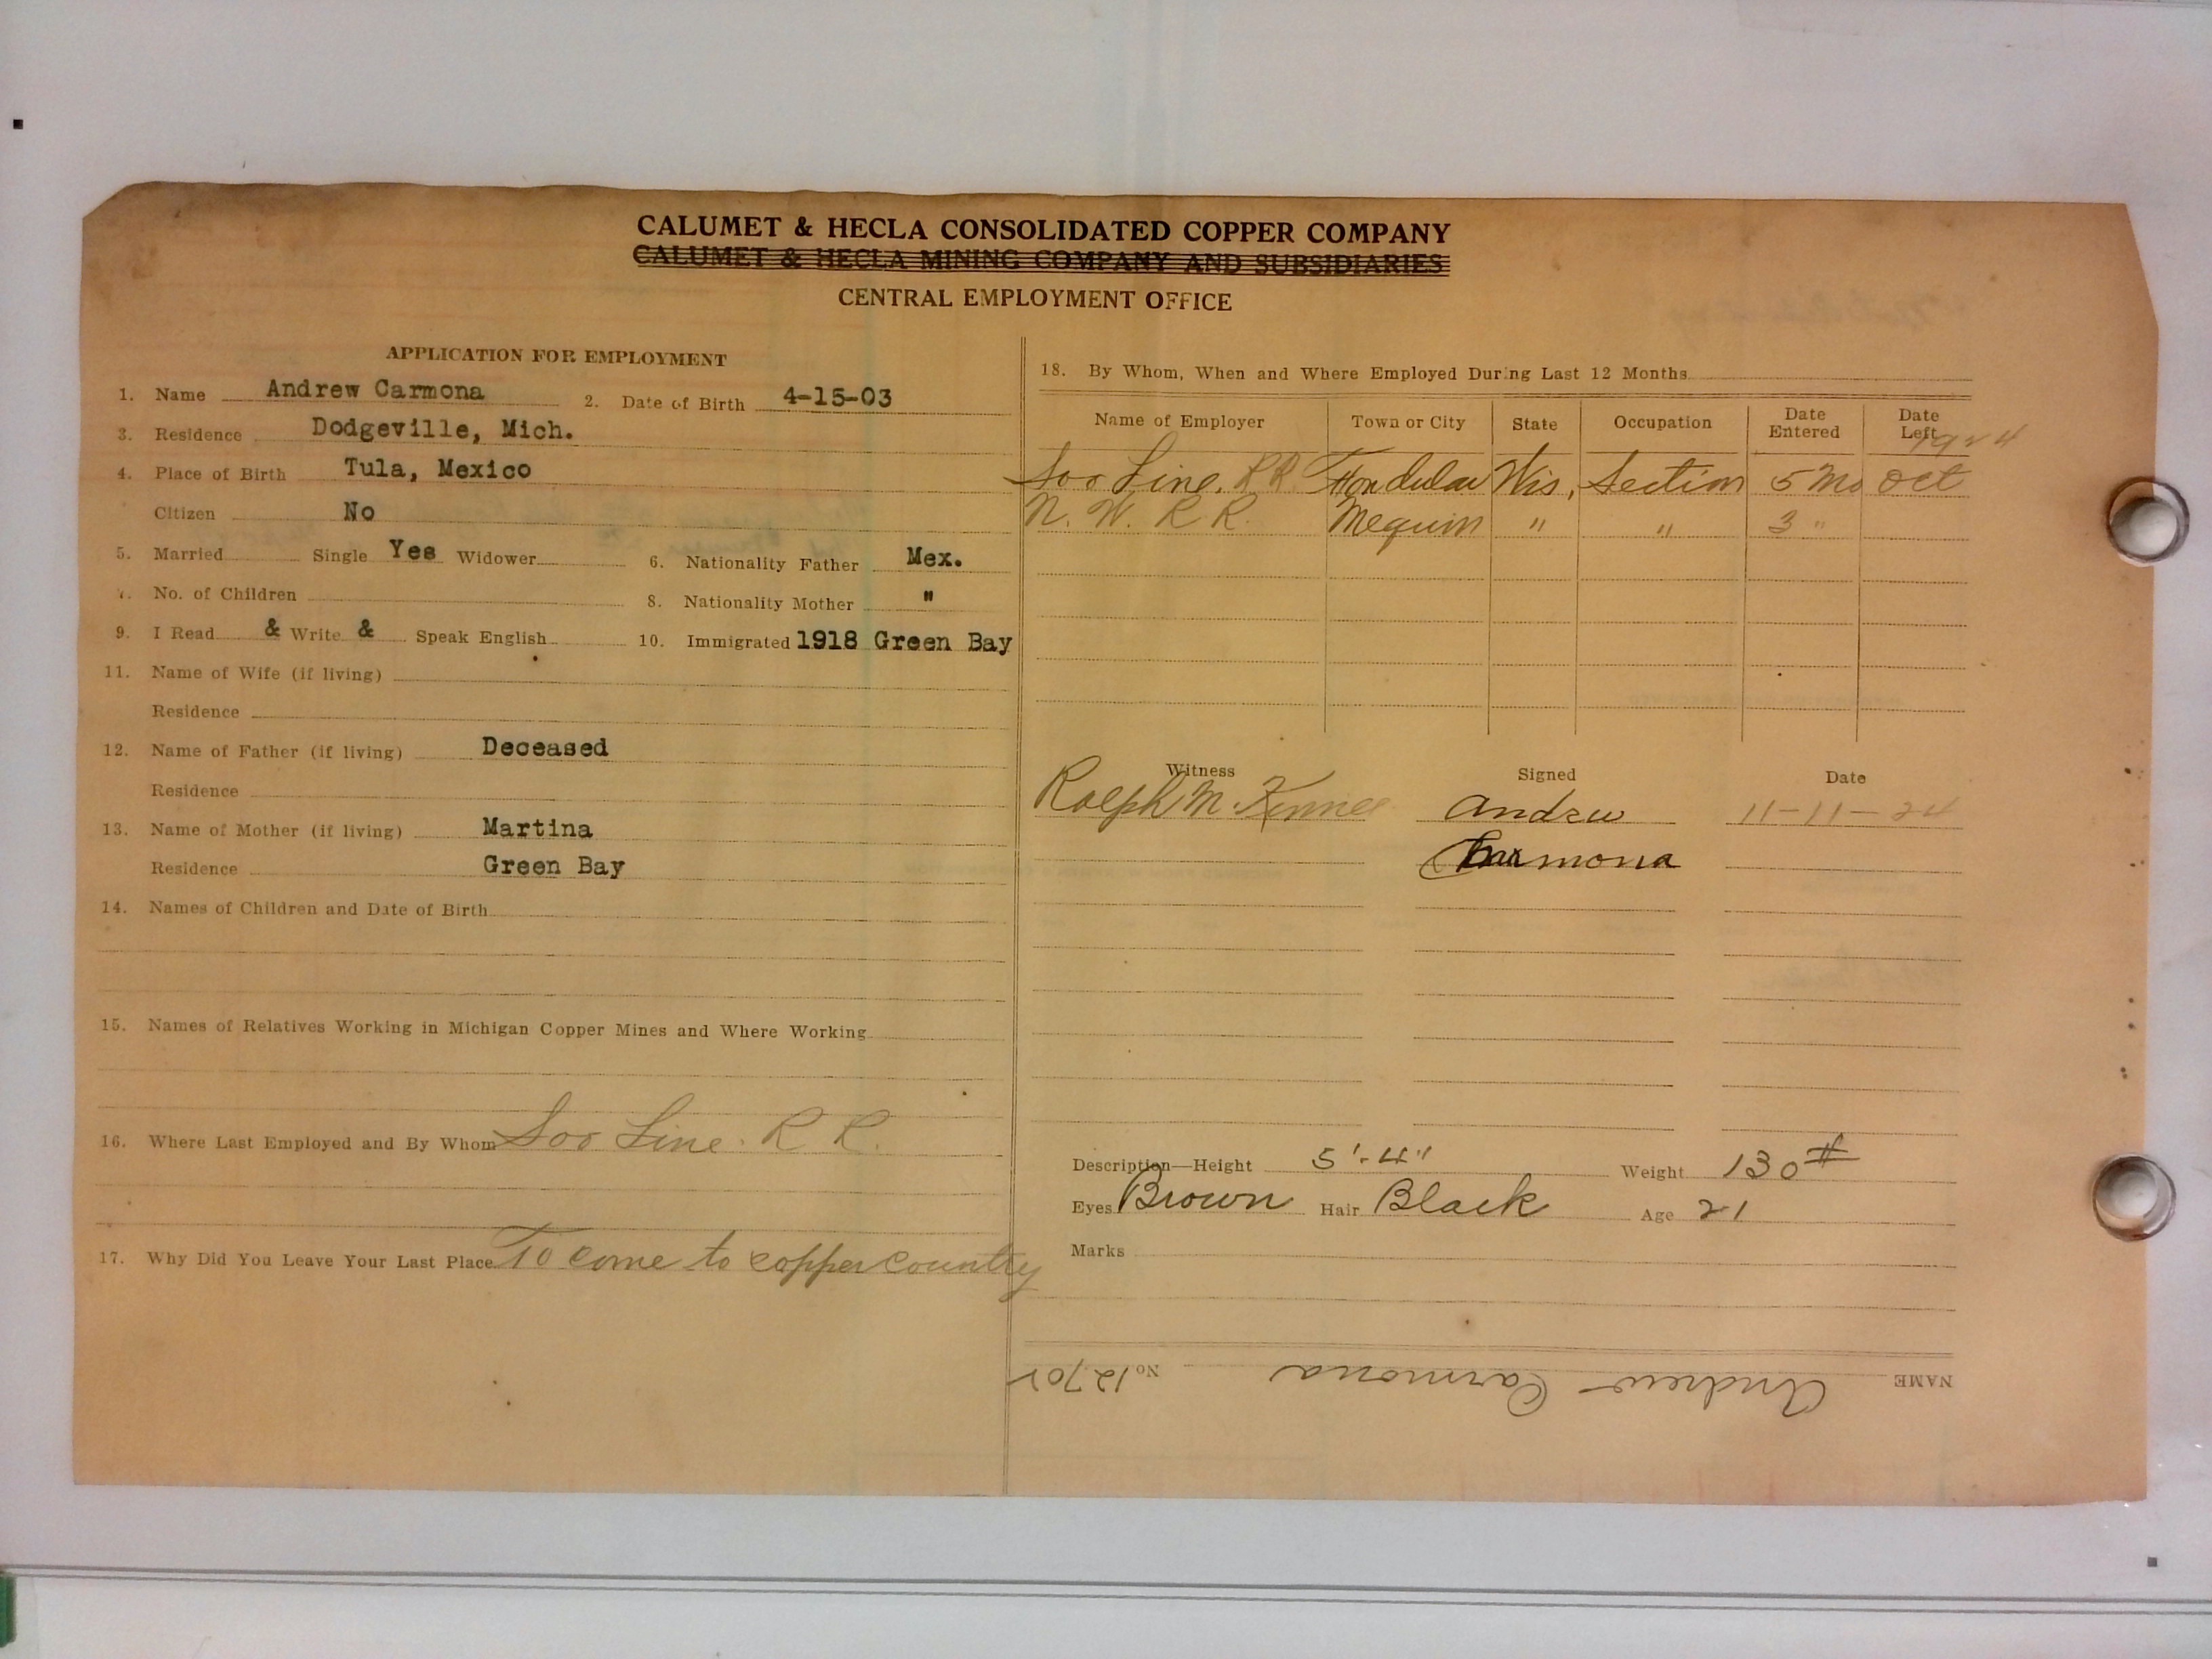 CALUMET & HECLA CONSOLIDATED COPPER COMPANY
CALUMET & HECLA MINING COMPANY AND SUBSIDIARIES
CENTRAL EMPLOYMENT OFFICE
APPLICATION FOR EMPLOYMENT
1. Name Andrew Carmona 2. Date of Birth 4-15-03
3. Residence Dodgeville, Mich.
4. Place of Birth Tula, Mexico
Citizen No
5. Married Single Yes Widower 6. Nationality Father Mex.
7. No. of Children 8. Nationality Mother "
9. I Read & Write & Speak English 10. Immigrated 1918 Green Bay
11. Name of Wife (if living)
Residence
12. Name of Father (if living) Deceased
Residence
13. Name of Mother (if living) Martina
Residence Green Bay
14. Names of Children and Date of Birth
15. Names of Relatives Working in Michigan Copper Mines and Where Working
16. Where Last Employed and By Whom Soo Line. R R.
17. Why Did You Leave Your Last Place To come to copper country
18. By Whom, When and Where Employed During Last 12 Months
Name of Employer Town or City State Occupation Date Entered Date Left
1924
Soo Line. R R. Fondulac Wis, Section 5 Mo Oct
N. W. R R. Mequin " " 3 "
Witness Signed Date
Ralph M. Andrew 11-11-24
Carmona
Description—Height 5'-4" Weight 130#
Eyes Brown Hair Black Age 21
Marks
NAME Andrew Carmona No. 12702